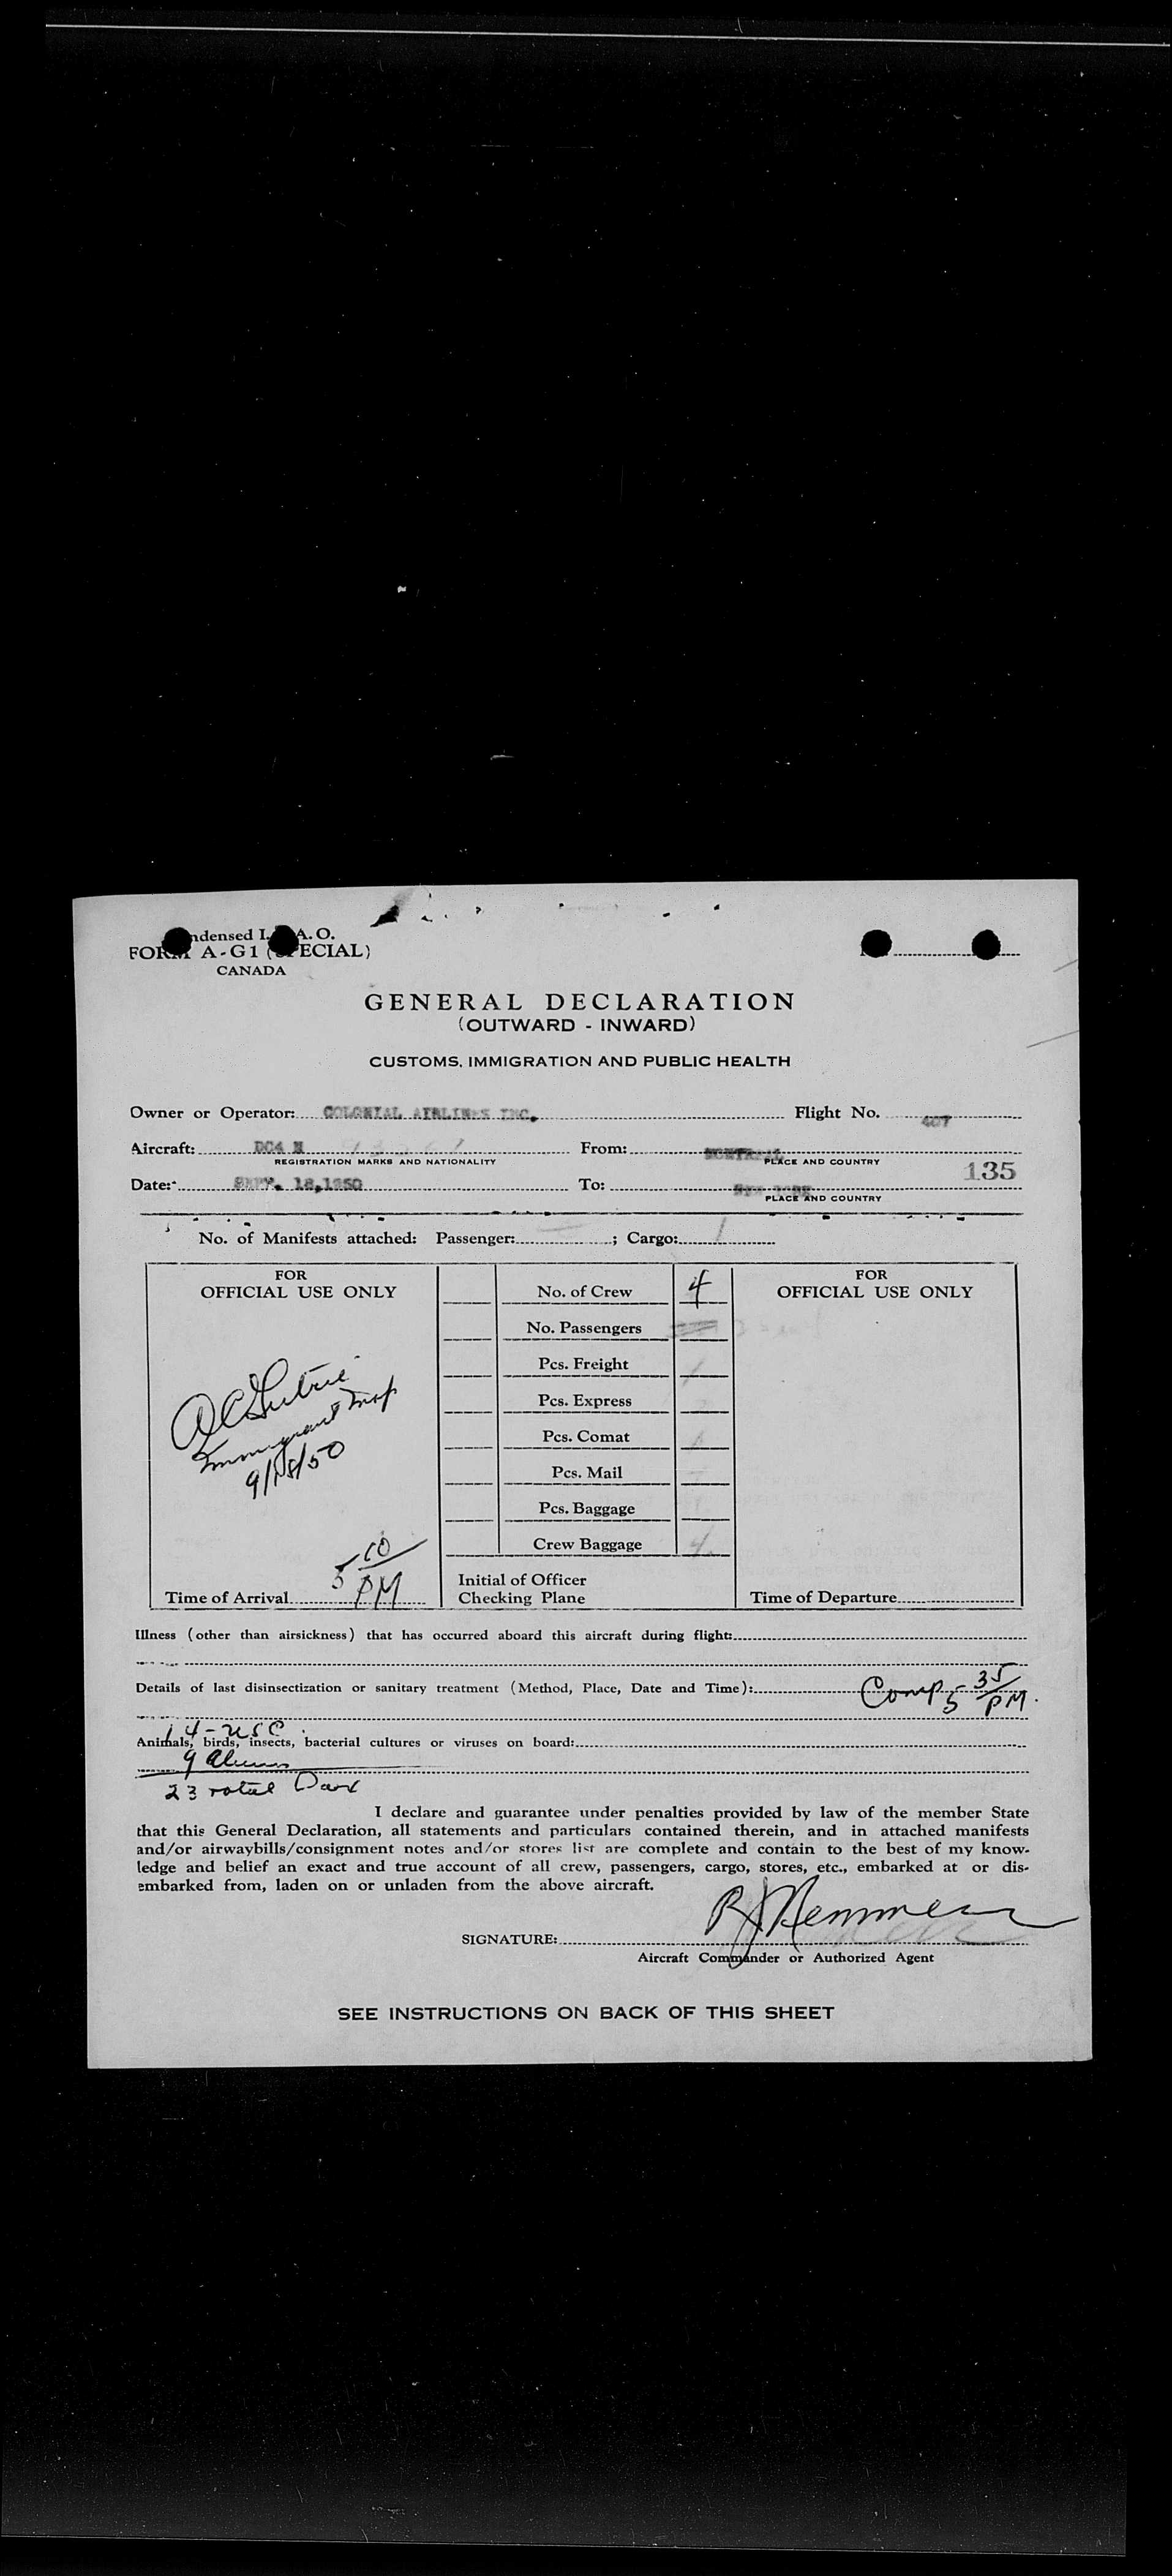 Condensed I.C.A.O.
FORM A-G1 (SPECIAL)
CANADA
GENERAL DECLARATION
(OUTWARD - INWARD)
CUSTOMS, IMMIGRATION AND PUBLIC HEALTH
Owner or Operator: COLONIAL AIRLINES INC. Flight No. 407
Aircraft: DC4 N From: MONTREAL
REGISTRATION MARKS AND NATIONALITY PLACE AND COUNTRY
135
Date: SEPT. 18,1950 To: NEW YORK
PLACE AND COUNTRY
No. of Manifests attached: Passenger: ; Cargo: 1
FOR
OFFICIAL USE ONLY
No. of Crew 4
No. Passengers
Pcs. Freight
Pcs. Express
Pcs. Comat
Pcs. Mail
Pcs. Baggage
Crew Baggage 4
Initial of Officer
Checking Plane
FOR
OFFICIAL USE ONLY
Immigrant Insp
9/18/50
5 10 PM
Time of Arrival
Time of Departure
Illness (other than airsickness) that has occurred aboard this aircraft during flight:
Details of last disinsectization or sanitary treatment (Method, Place, Date and Time): Comp 5 35 PM.
14 - USC
Animals, birds, insects, bacterial cultures or viruses on board:
9 Aliens
23 total
I declare and guarantee under penalties provided by law of the member State
that this General Declaration, all statements and particulars contained therein, and in attached manifests
and/or airwaybills/consignment notes and/or stores list are complete and contain to the best of my know-
ledge and belief an exact and true account of all crew, passengers, cargo, stores, etc., embarked at or dis-
embarked from, laden on or unladen from the above aircraft.
SIGNATURE:
Aircraft Commander or Authorized Agent
SEE INSTRUCTIONS ON BACK OF THIS SHEET